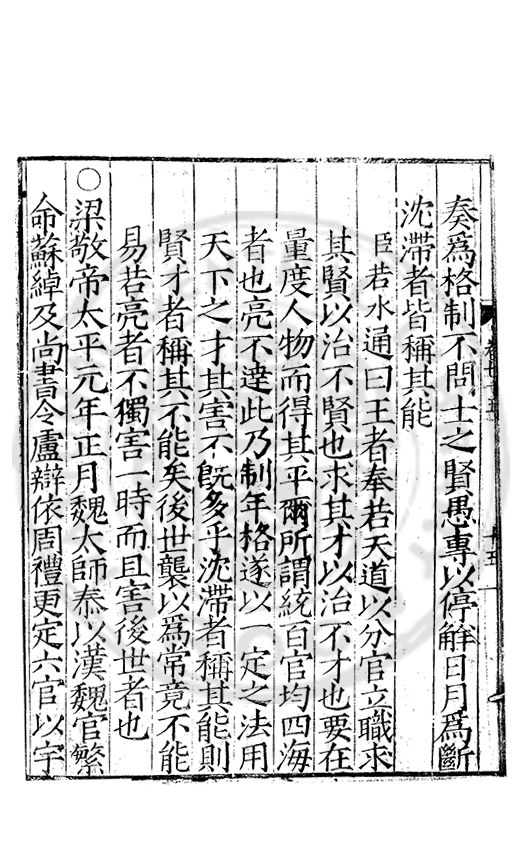 奏為格制不問士之賢愚專以停解日月為斷
沈滯者皆稱其能
臣若水通曰王者奉若天道以分官立職求
其賢以治不賢也求其才以治不才也要在
量度人物而得其平爾所謂統百官均四海
者也亮不達此乃制年格遂以一定之法用
天下之才其害不既多乎沈滯者稱其能則
賢才者稱其不能矣後世襲以為常竟不能
易若亮者不獨害一時而且害後世者也
○梁敬帝太平元年正月魏太師泰以漢魏官繁
命蘇綽及尚書令盧辯依周禮更定六官以宇